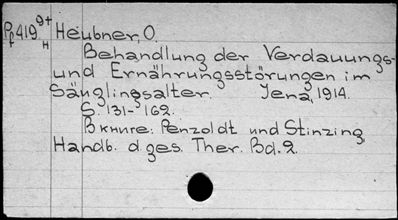 Pf419 9+ Heubner, O.
н
Behandlung der Verdauungs-
und Ernährungsstörungen im
Säuglingsalter. Jena, 1914.
S. 131-162.
В книге: Penzoldt und Stinzing
Handb. d. ges. Ther. Bd. 2.